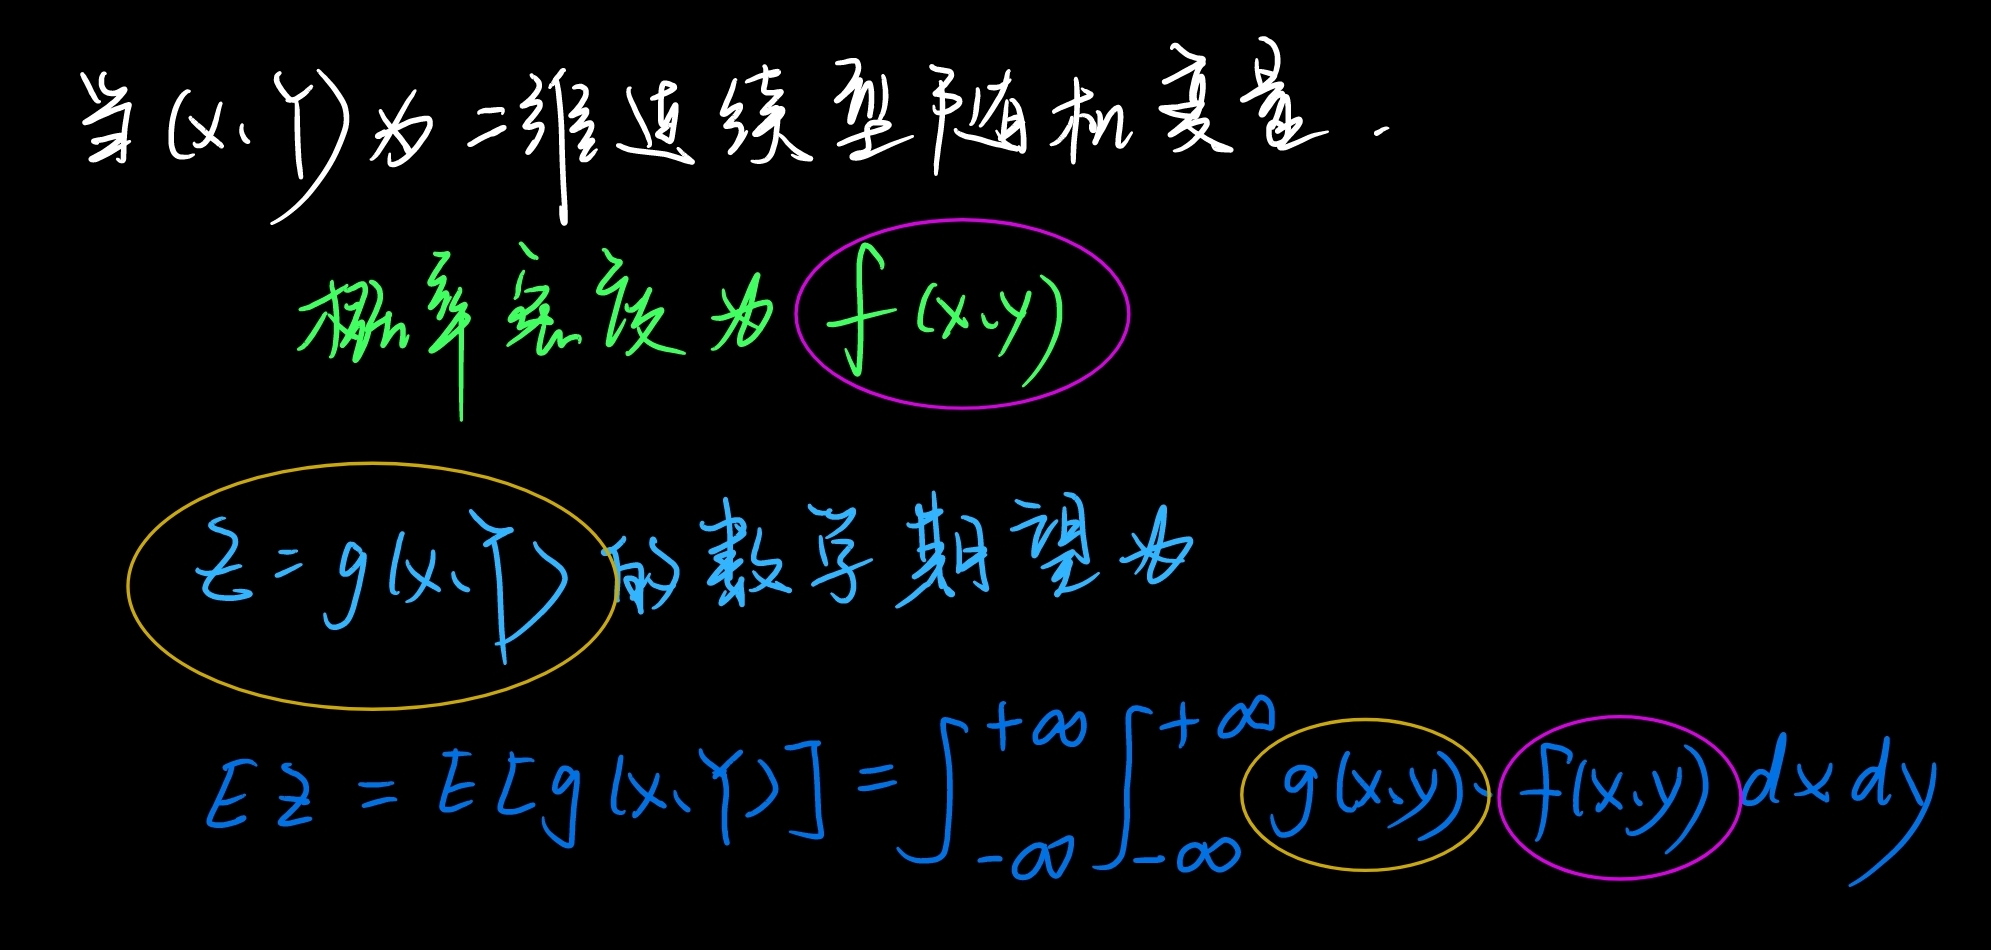 当(X、Y)为二维连续型随机变量.
概率密度为 f(x、y)
Z=g(X、Y)的数学期望为
EZ = E[g(X、Y)] = ∫_{-∞}^{+∞} ∫_{-∞}^{+∞} g(x、y)·f(x、y)dxdy